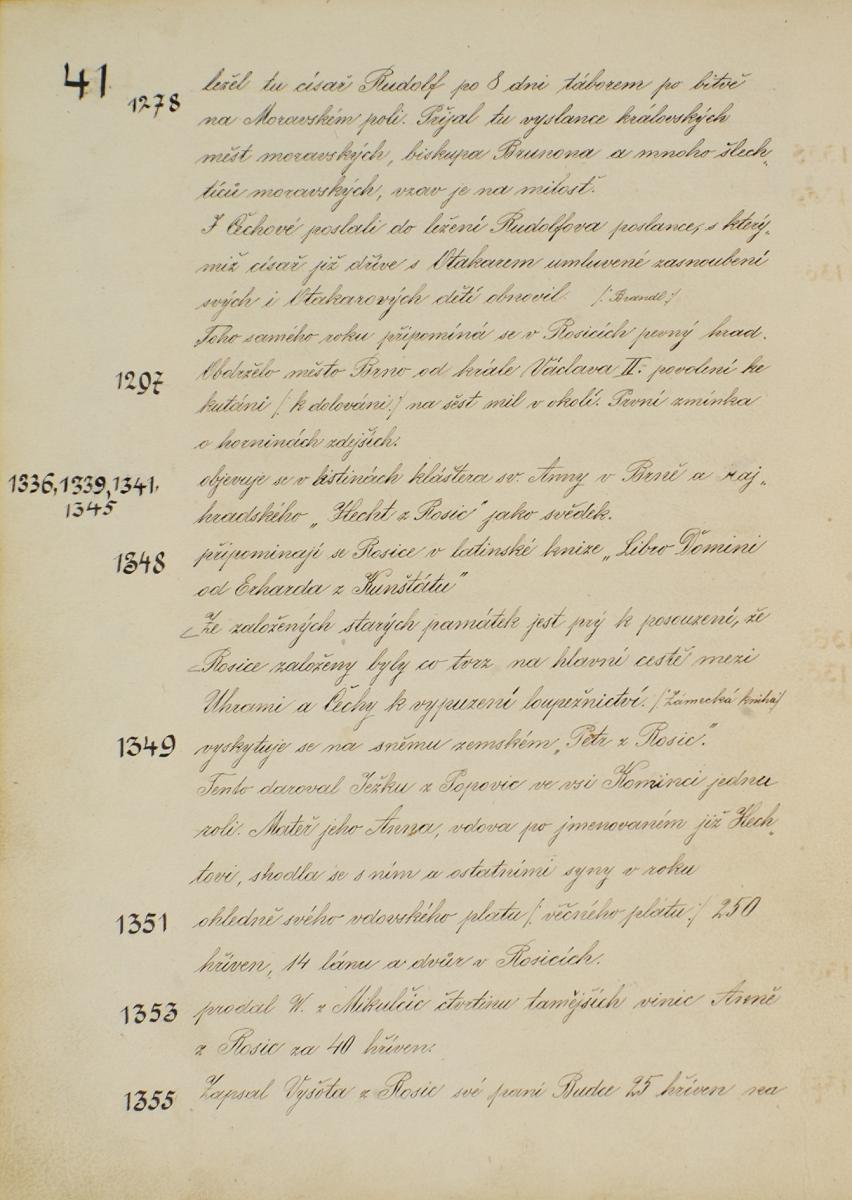 41
1278 ležel tu císař Rudolf po 8 dni táborem po bitvě
na Moravském poli. Přijal tu vyslance královských
měst moravských, biskupa Brunona a mnoho šlech-
ticů moravských, vzav je na milosť.
I Čechové poslali do ležení Rudolfova poslance, s který-
miž císař již dříve s Otakarem umluvené zasnoubení
svých i Otakarových dětí obnovil. /: Brandl :/
Toho samého roku připomíná se v Rosicích pevný hrad.
1297 Obdrželo město Brno od krále Václava II. povolení ke
kutáni /: k dolováni :/ na šest mil v okolí. První zmínka
o horninách zdejších.
1336, 1339, 1341, objevuje se v listinách kláštera sv. Anny v Brně a raj-
1345 hradského „Hecht z Rosic" jako svědek.
1348 připominají se Rosice v latinské knize „Libro Domini
od Erharda z Kunštátu"
Ze založených starých památek jest prý k posouzení, že
Rosice založeny byly co tvrz na hlavní cestě mezi
Uhrami a Čechy k vypuzení loupežnictví. /: Zámecká kniha :/
1349 vyskytuje se na sněmu zemském „Petr z Rosic."
Tento daroval Ježku z Popovic ve vsi Kominci jednu
roli. Mateř jeho Anna, vdova po jmenovaném již Hech-
tovi, shodla se s ním a ostatními syny v roku
1351 ohledně svého vdovského platu /: věčného platu :/ 250
hřiven, 14 lánu a dvůr v Rosicích.
1353 prodal W. z Mikulčic čtvrtinu tamějších vinic Anně
z Rosic za 40 hřiven.
1355 Zapsal Vyšota z Rosic své paní Budce 25 hřiven na